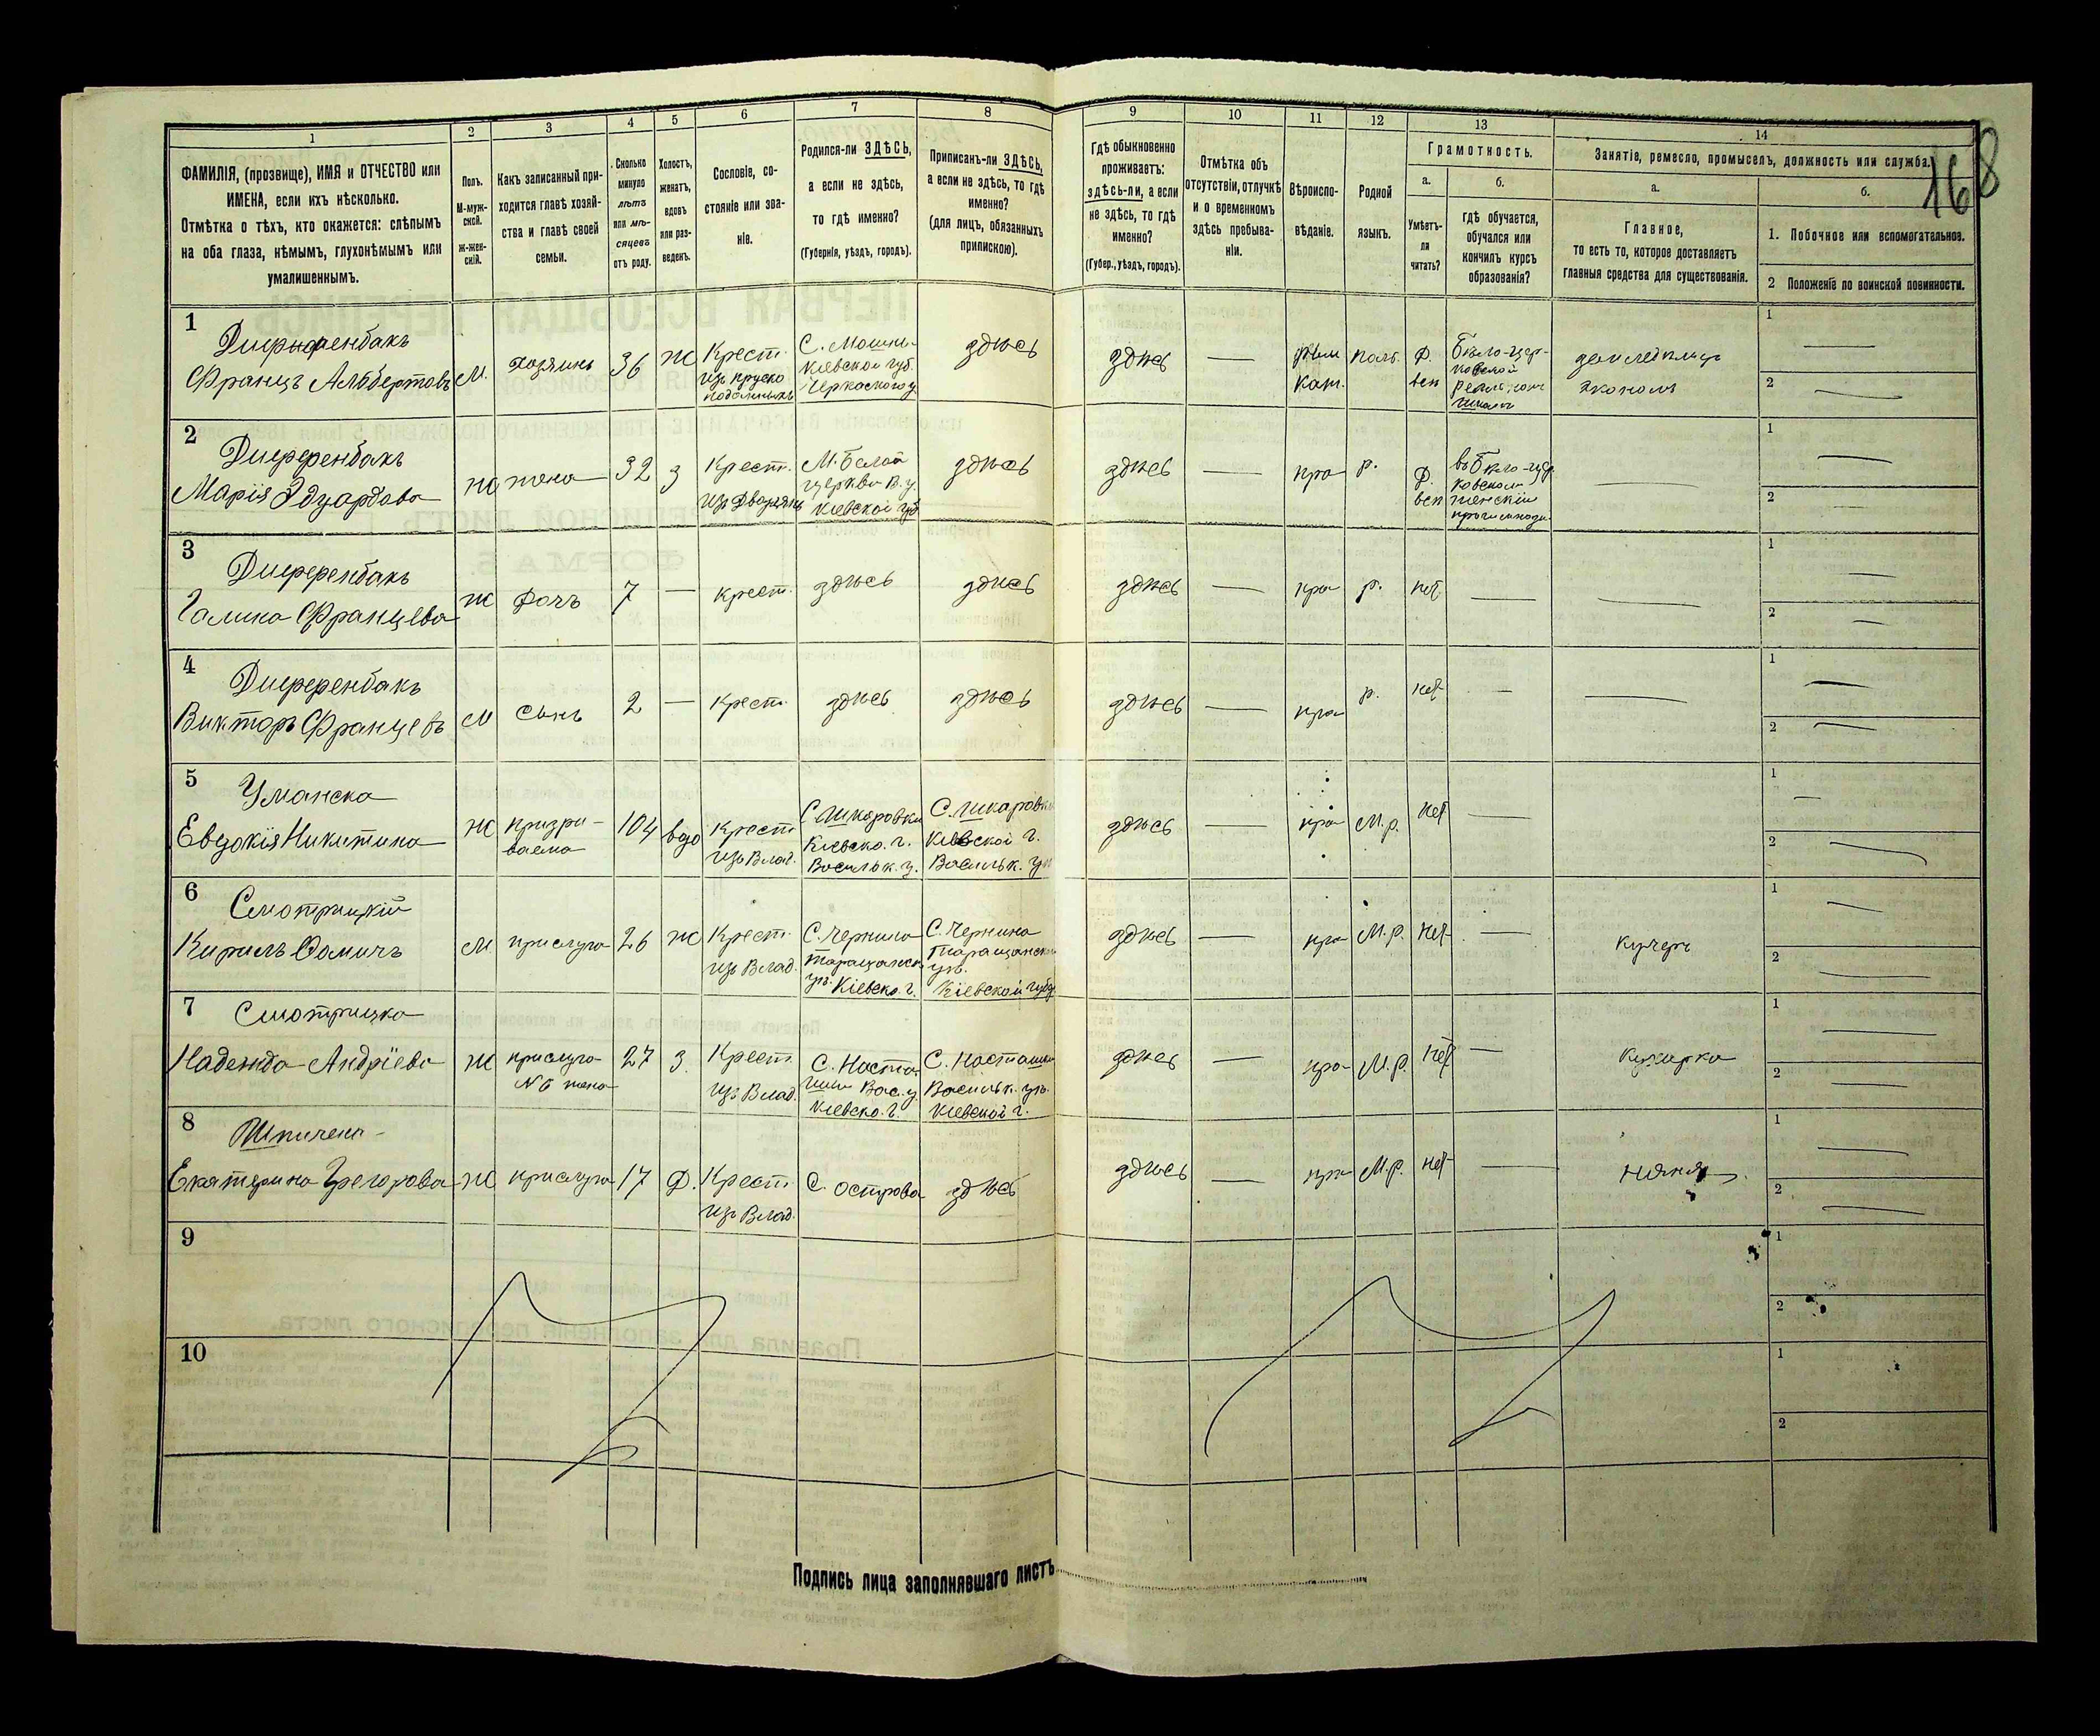 168
1 2 3 4 5 6 7 8 9 10 11 12 13 14
ФАМИЛІЯ, (прозвище), ИМЯ и ОТЧЕСТВО или
ИМЕНА, если ихъ нѣсколько.
Отмѣтка о тѣхъ, кто окажется: слѣпымъ
на оба глаза, нѣмымъ, глухонѣмымъ или
умалишеннымъ.
Полъ.
М-муж-
ской.
Ж-жен-
скій.
Какъ записанный при-
ходится главѣ хозяй-
ства и главѣ своей
семьи.
Сколько
минуло
лѣтъ
или мѣ-
сяцевъ
отъ роду.
Холостъ,
женатъ,
вдовъ
или раз-
веденъ.
Сословіе, со-
стояніе или зва-
ніе.
Родился-ли ЗДѢСЬ,
а если не здѣсь,
то гдѣ именно?
(Губернія, уѣздъ, городъ).
Приписанъ-ли ЗДѢСЬ,
а если не здѣсь, то гдѣ
именно?
(для лицъ, обязанныхъ
припискою).
Гдѣ обыкновенно
проживаетъ:
здѣсь-ли, а если
не здѣсь, то гдѣ
именно?
(Губер., уѣздъ, городъ).
Отмѣтка объ
отсутствіи, отлучкѣ
и о временномъ
здѣсь пребыва-
ніи.
Вѣроиспо-
вѣданіе.
Родной
языкъ.
Грамотность.
а.
Умѣетъ-
ли
читать?
б.
гдѣ обучается,
обучался или
кончилъ курсъ
образованія?
Занятіе, ремесло, промыселъ, должность или служба.
а.
Главное,
то есть то, которое доставляетъ
главныя средства для существованія.
б.
1. Побочное или вспомогательное.
2 Положеніе по воинской повинности.
1
Диференбакъ
Францъ Альбертовъ
М.
хозяинъ
36
Ж
Крест.
изъ прусско
подданныхъ
С. Мошны
Кіевской губ.
Черкаского у.
здѣсь
здѣсь
—
Рим
Кат.
Поль.
Бѣло-цер-
ковской
экономъ
1 —
2 —
2
Диференбакъ
Марія Эдуардова
Ж
жена
32
З
Крест.
изъ дворянъ
М. Белой
церкви В. у.
Кіевской губ
здѣсь
здѣсь
—
пра
р.
въ Бѣло-цер
ковском
женскім
—
1 —
2 —
3
Диференбакъ
Галина Францева
Ж
дочь
7
—
крест.
здѣсь
здѣсь
здѣсь
—
пра
р.
нет
—
—
1 —
2 —
4
Диференбакъ
Викторъ Францевъ
М
сынъ
2
—
крест.
здѣсь
здѣсь
здѣсь
—
пра
р.
нет
—
—
1 —
2 —
5
Уманска
Евдокія Никитина
Ж
призри-
ваема
104
вдо
Крест
изъ Влад.
С. Шкаровки
Кіевско. г.
Васильк. у.
С. Шкаровки
Кіевской г.
Васильк. уѣ
здѣсь
—
пра
М.р.
нет
—
1 —
2 —
6
Смотрицкій
Кирилъ Фомичъ
М.
прислуга
26
Ж
Крест.
изъ Влад.
С. Чернина
Таращанск
уѣ. Кіевско. г.
С. Чернина
Таращанско
уѣ.
Кіевской губ
здѣсь
—
пра
М.р.
нет
—
кучеръ
1 —
2 —
7
Смотрицка
Надежда Андріева
Ж
прислуга
№6 жена
27
З.
Крест.
изъ Влад.
С. Наста
шки Вас. у
Кіевско. г.
С. Насташки
Васильк. уѣ.
Кіевской г.
здѣсь
—
пра
М.р.
нет
—
кухарка
1 —
2 —
8
Екатерина Грегорова
Ж
прислуга
17
Д.
Крест
изъ Влад.
С. Острова
здѣсь
здѣсь
—
пра
М.р.
нет
—
няня
1 —
2 —
9
1
2
10
1
2
Подпись лица заполнявшаго листъ